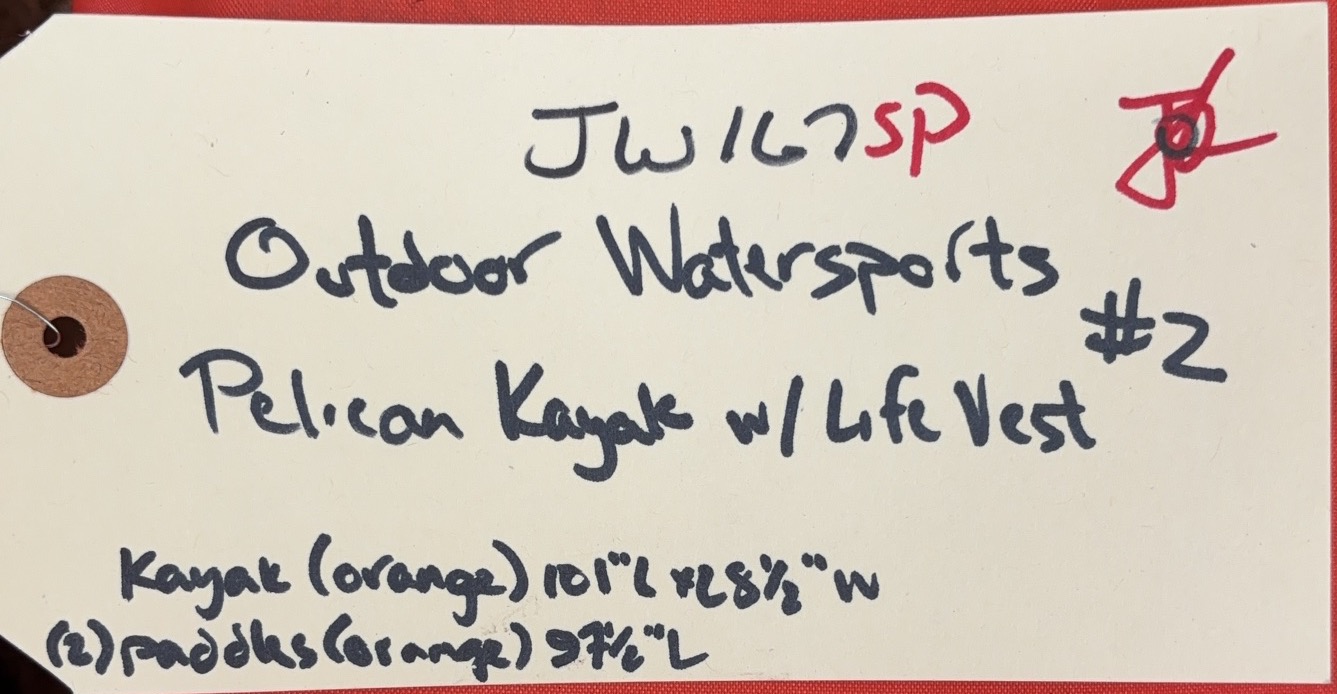 JW167SP
Outdoor Watersports
#2
Pelican Kayak w/ Life Vest
Kayak (orange) 101"L x28½"W
(2) paddles (orange) 97½"L